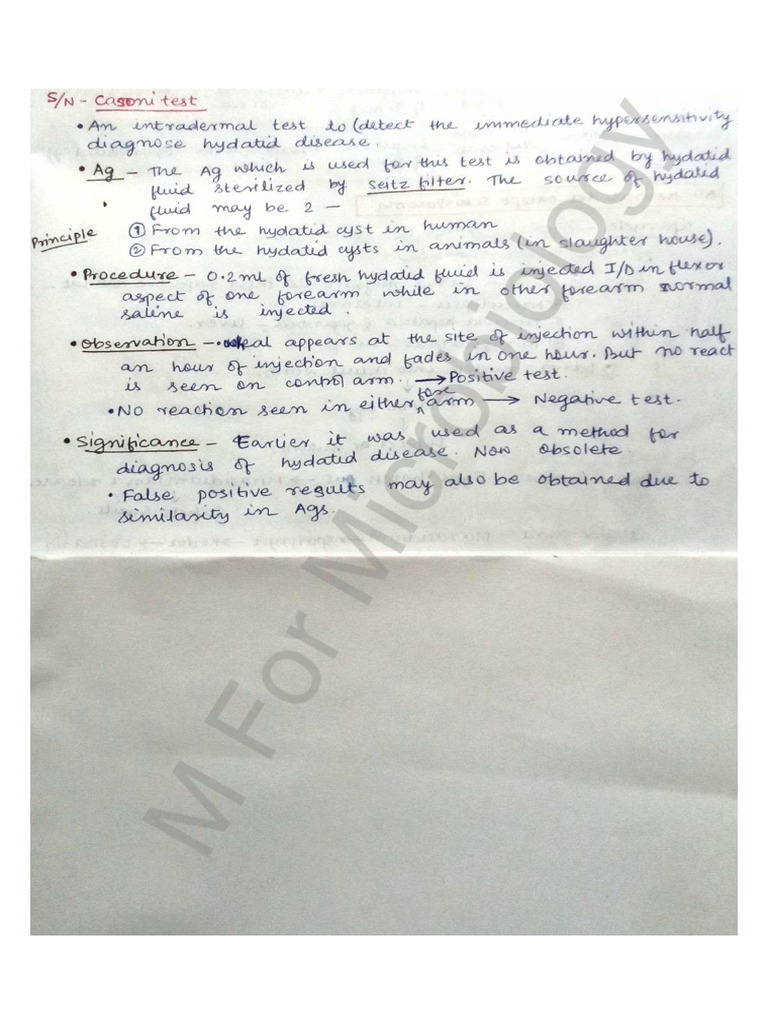 S/N - Casoni test
• An intradermal test to (detect the immediate hypersensitivity
diagnose hydatid disease.
• Ag - The Ag which is used for this test is obtained by hydatid
fluid sterilized by seitz filter. The source of hydatid
fluid may be 2 -
Principle
① From the hydatid cyst in human
② From the hydatid cysts in animals (in slaughter house).
• Procedure - 0.2ml of fresh hydatid fluid is injected I/D in flexor
aspect of one forearm while in other forearm normal
saline is injected.
• Observation - • weal appears at the site of injection within half
an hour of injection and fades in one hour. But no react
is seen on control arm. → Positive test.
• No reaction seen in either fore arm → Negative test.
• Significance - Earlier it was used as a method for
diagnosis of hydatid disease. Now obsolete.
• False positive results may also be obtained due to
similarity in Ags.
M For Microbiology